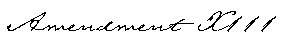 Amendment XIII